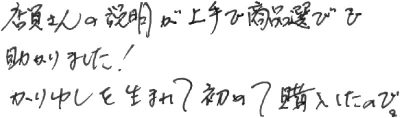 店員さんの説明が上手で商品選びも
助かりました!
かりゆしを生まれて初めて購入したので。